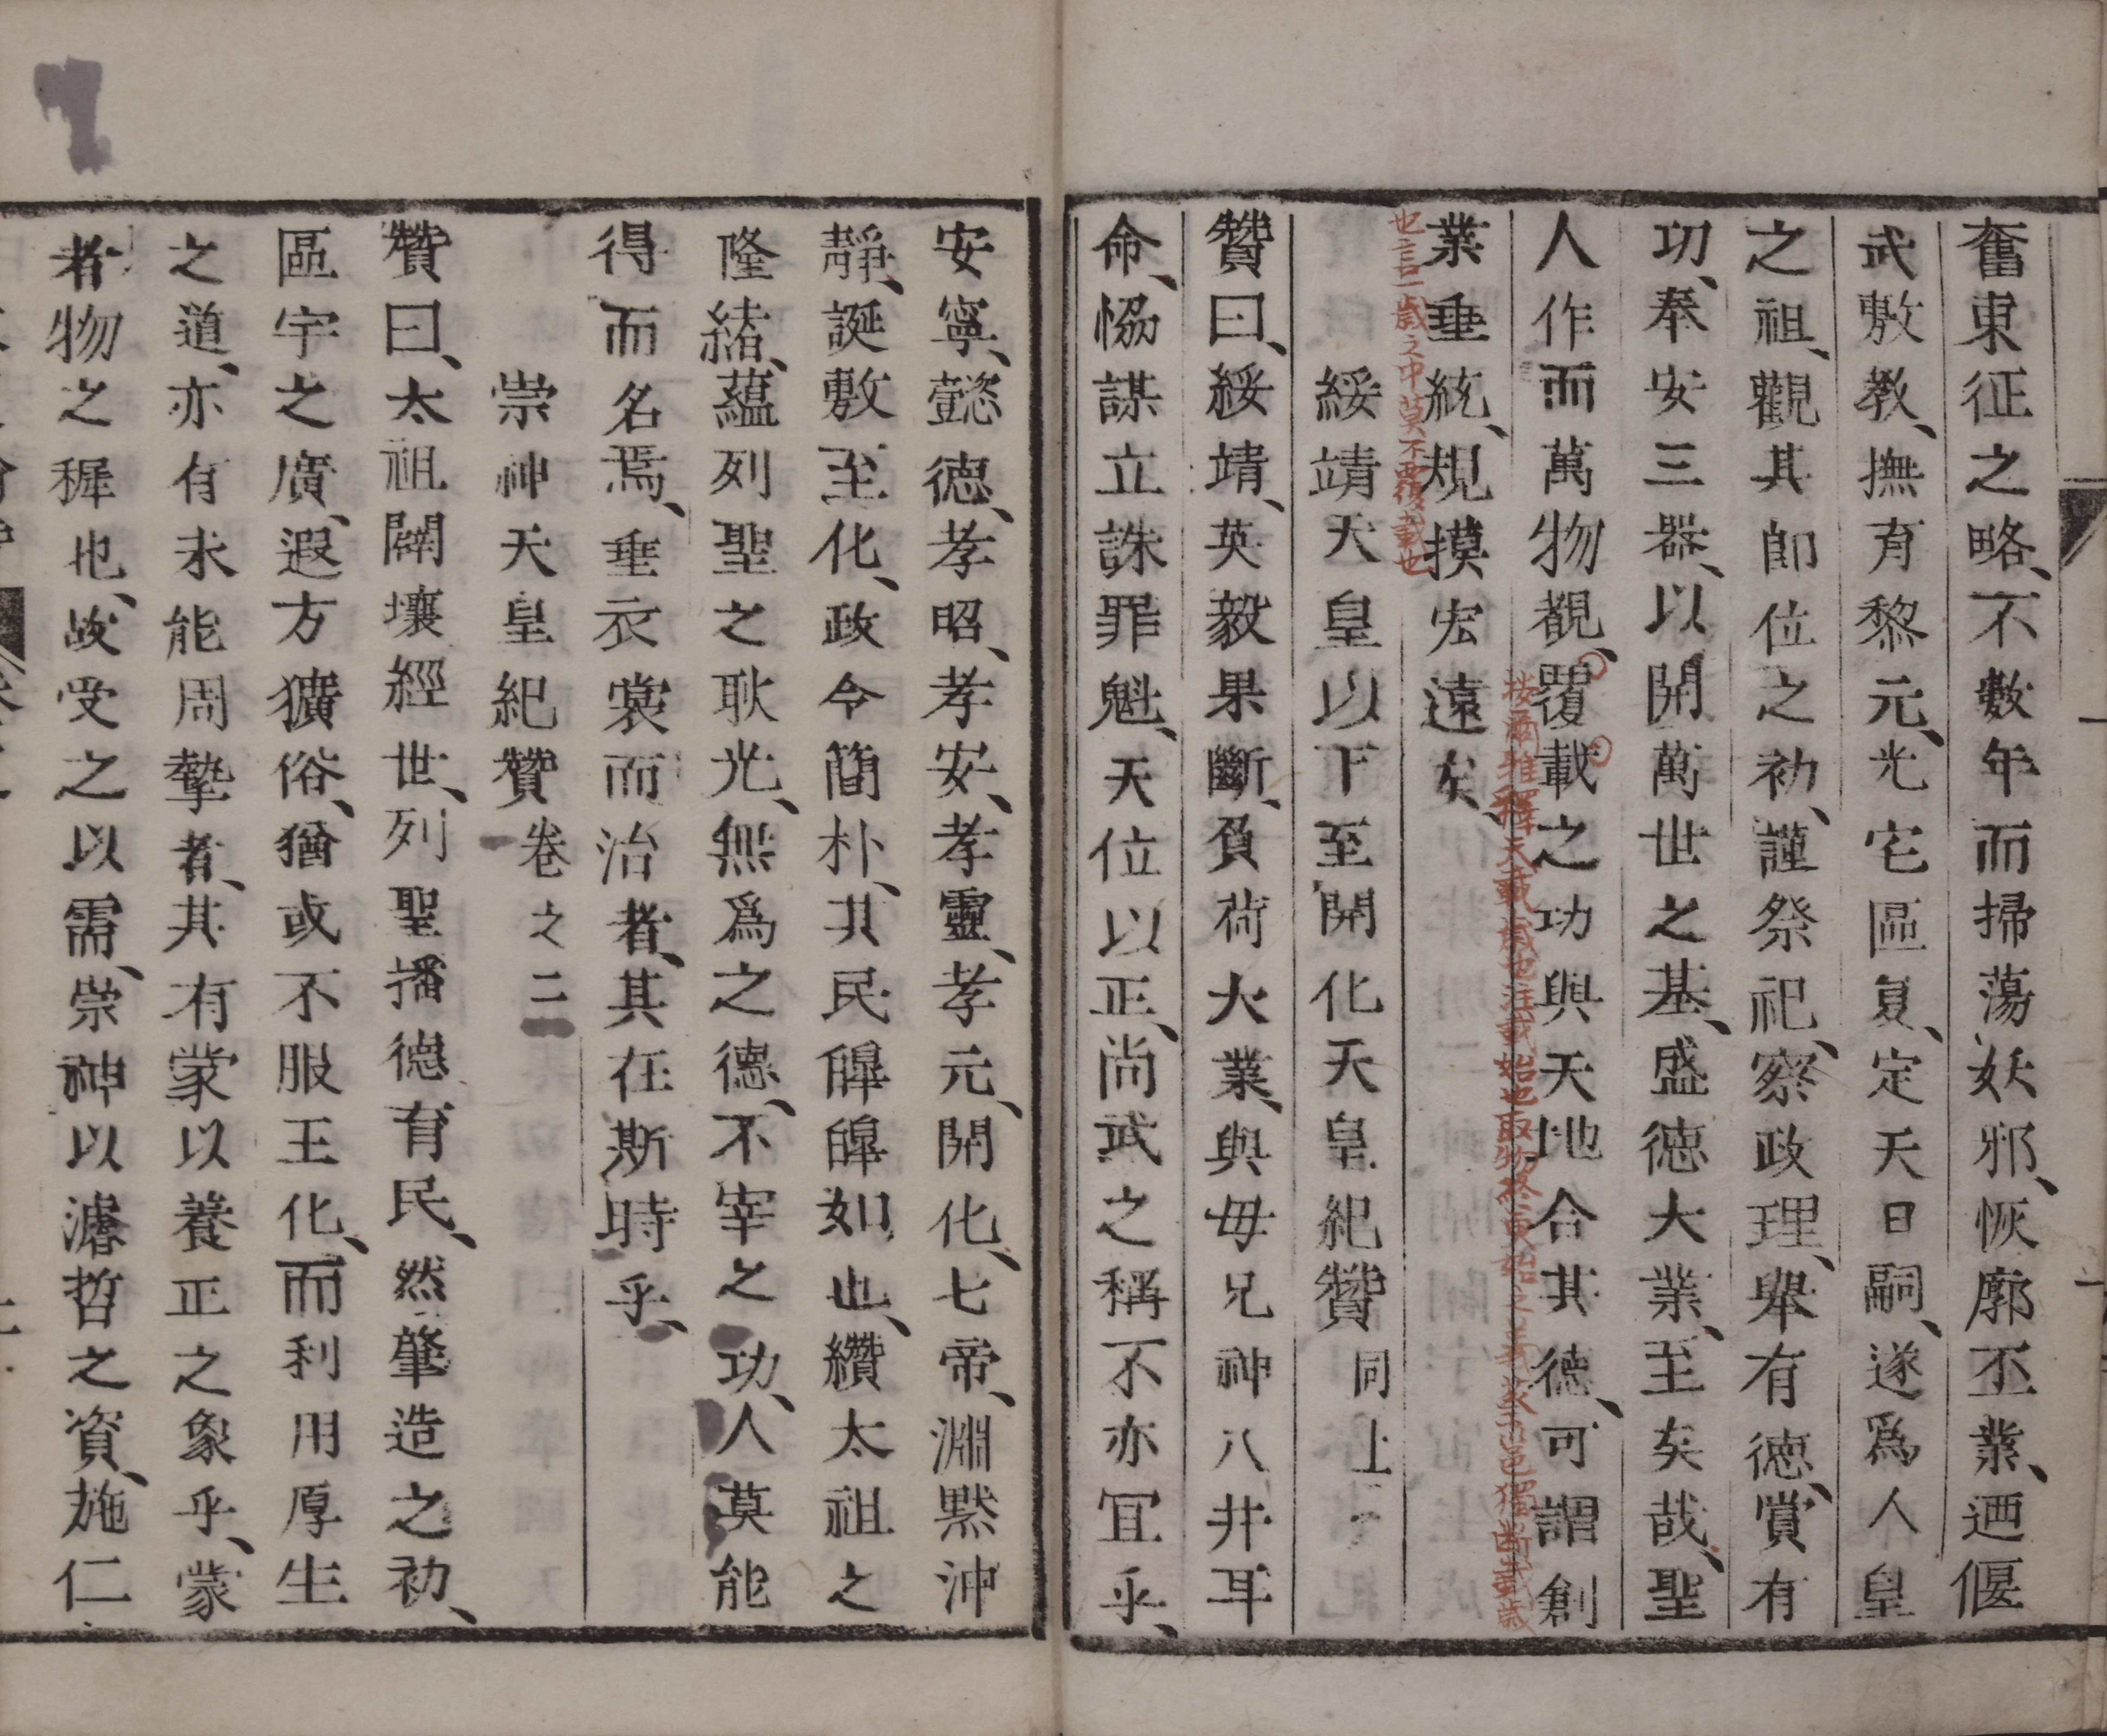 奮東征之略、不數年而掃蕩妖邪、恢廓丕業、迺偃
武敷教、撫育黎元、光宅區夏、定天日嗣、遂爲人皇
之祖、觀其卽位之初、謹祭祀、察政理、舉有德、賞有
功、奉安三器、以開萬世之基、盛德大業、至矣哉、聖
人作而萬物覩、覆載之功與天地合其德、可謂創
按爾雅釋天載歲也注載始也取物終更始之義蔡邕獨斷載歲
也言一歲之中莫不覆載也
業垂統、規摸宏遠矣、
綏靖天皇以下至開化天皇紀贊同上
贊曰、綏靖、英毅果斷、負荷大業、與毋兄神八井耳
命、恊謀立誅罪魁、天位以正、尚武之稱不亦冝乎、
安寧、懿德、孝昭、孝安、孝靈、孝元、開化、七帝、淵默沖
靜、誕敷至化、政令簡朴、其民皡皡如也、纘太祖之
隆緒、蘊列聖之耿光、無爲之德、不宰之功、人莫能
得而名焉、垂衣裳而治者、其在斯時乎、
崇神天皇紀贊卷之二
贊曰、太祖闢壤經世、列聖播德育民、然肇造之初、
區宇之廣、遐方獷俗、猶或不服王化、而利用厚生
之道、亦有未能周摯者、其有蒙以養正之象乎、蒙
者物之穉也、故受之以需、崇神以濬哲之資、施仁